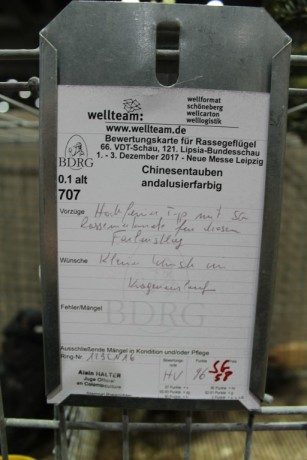 wellteam:
wellformat
schöneberg
wellcarton
welllogistik
www.wellteam.de
Bewertungskarte für Rassegeflügel
66. VDT-Schau, 121. Lipsia-Bundesschau
1. - 3. Dezember 2017 - Neue Messe Leipzig
BDRG
Chinesentauben
andalusierfarbig
0.1 alt
707
Vorzüge
Hochfeiner Typ mit SG
für diesen
Farbenschlag
Wünsche
Kleine Wünsche im
Kragenverlauf
Fehler/Mängel
BDRG
Ausschließende Mängel in Kondition und/oder Pflege
Ring-Nr.
Alain HALTER
Juge Officiel
en Colombiculture
HV
96